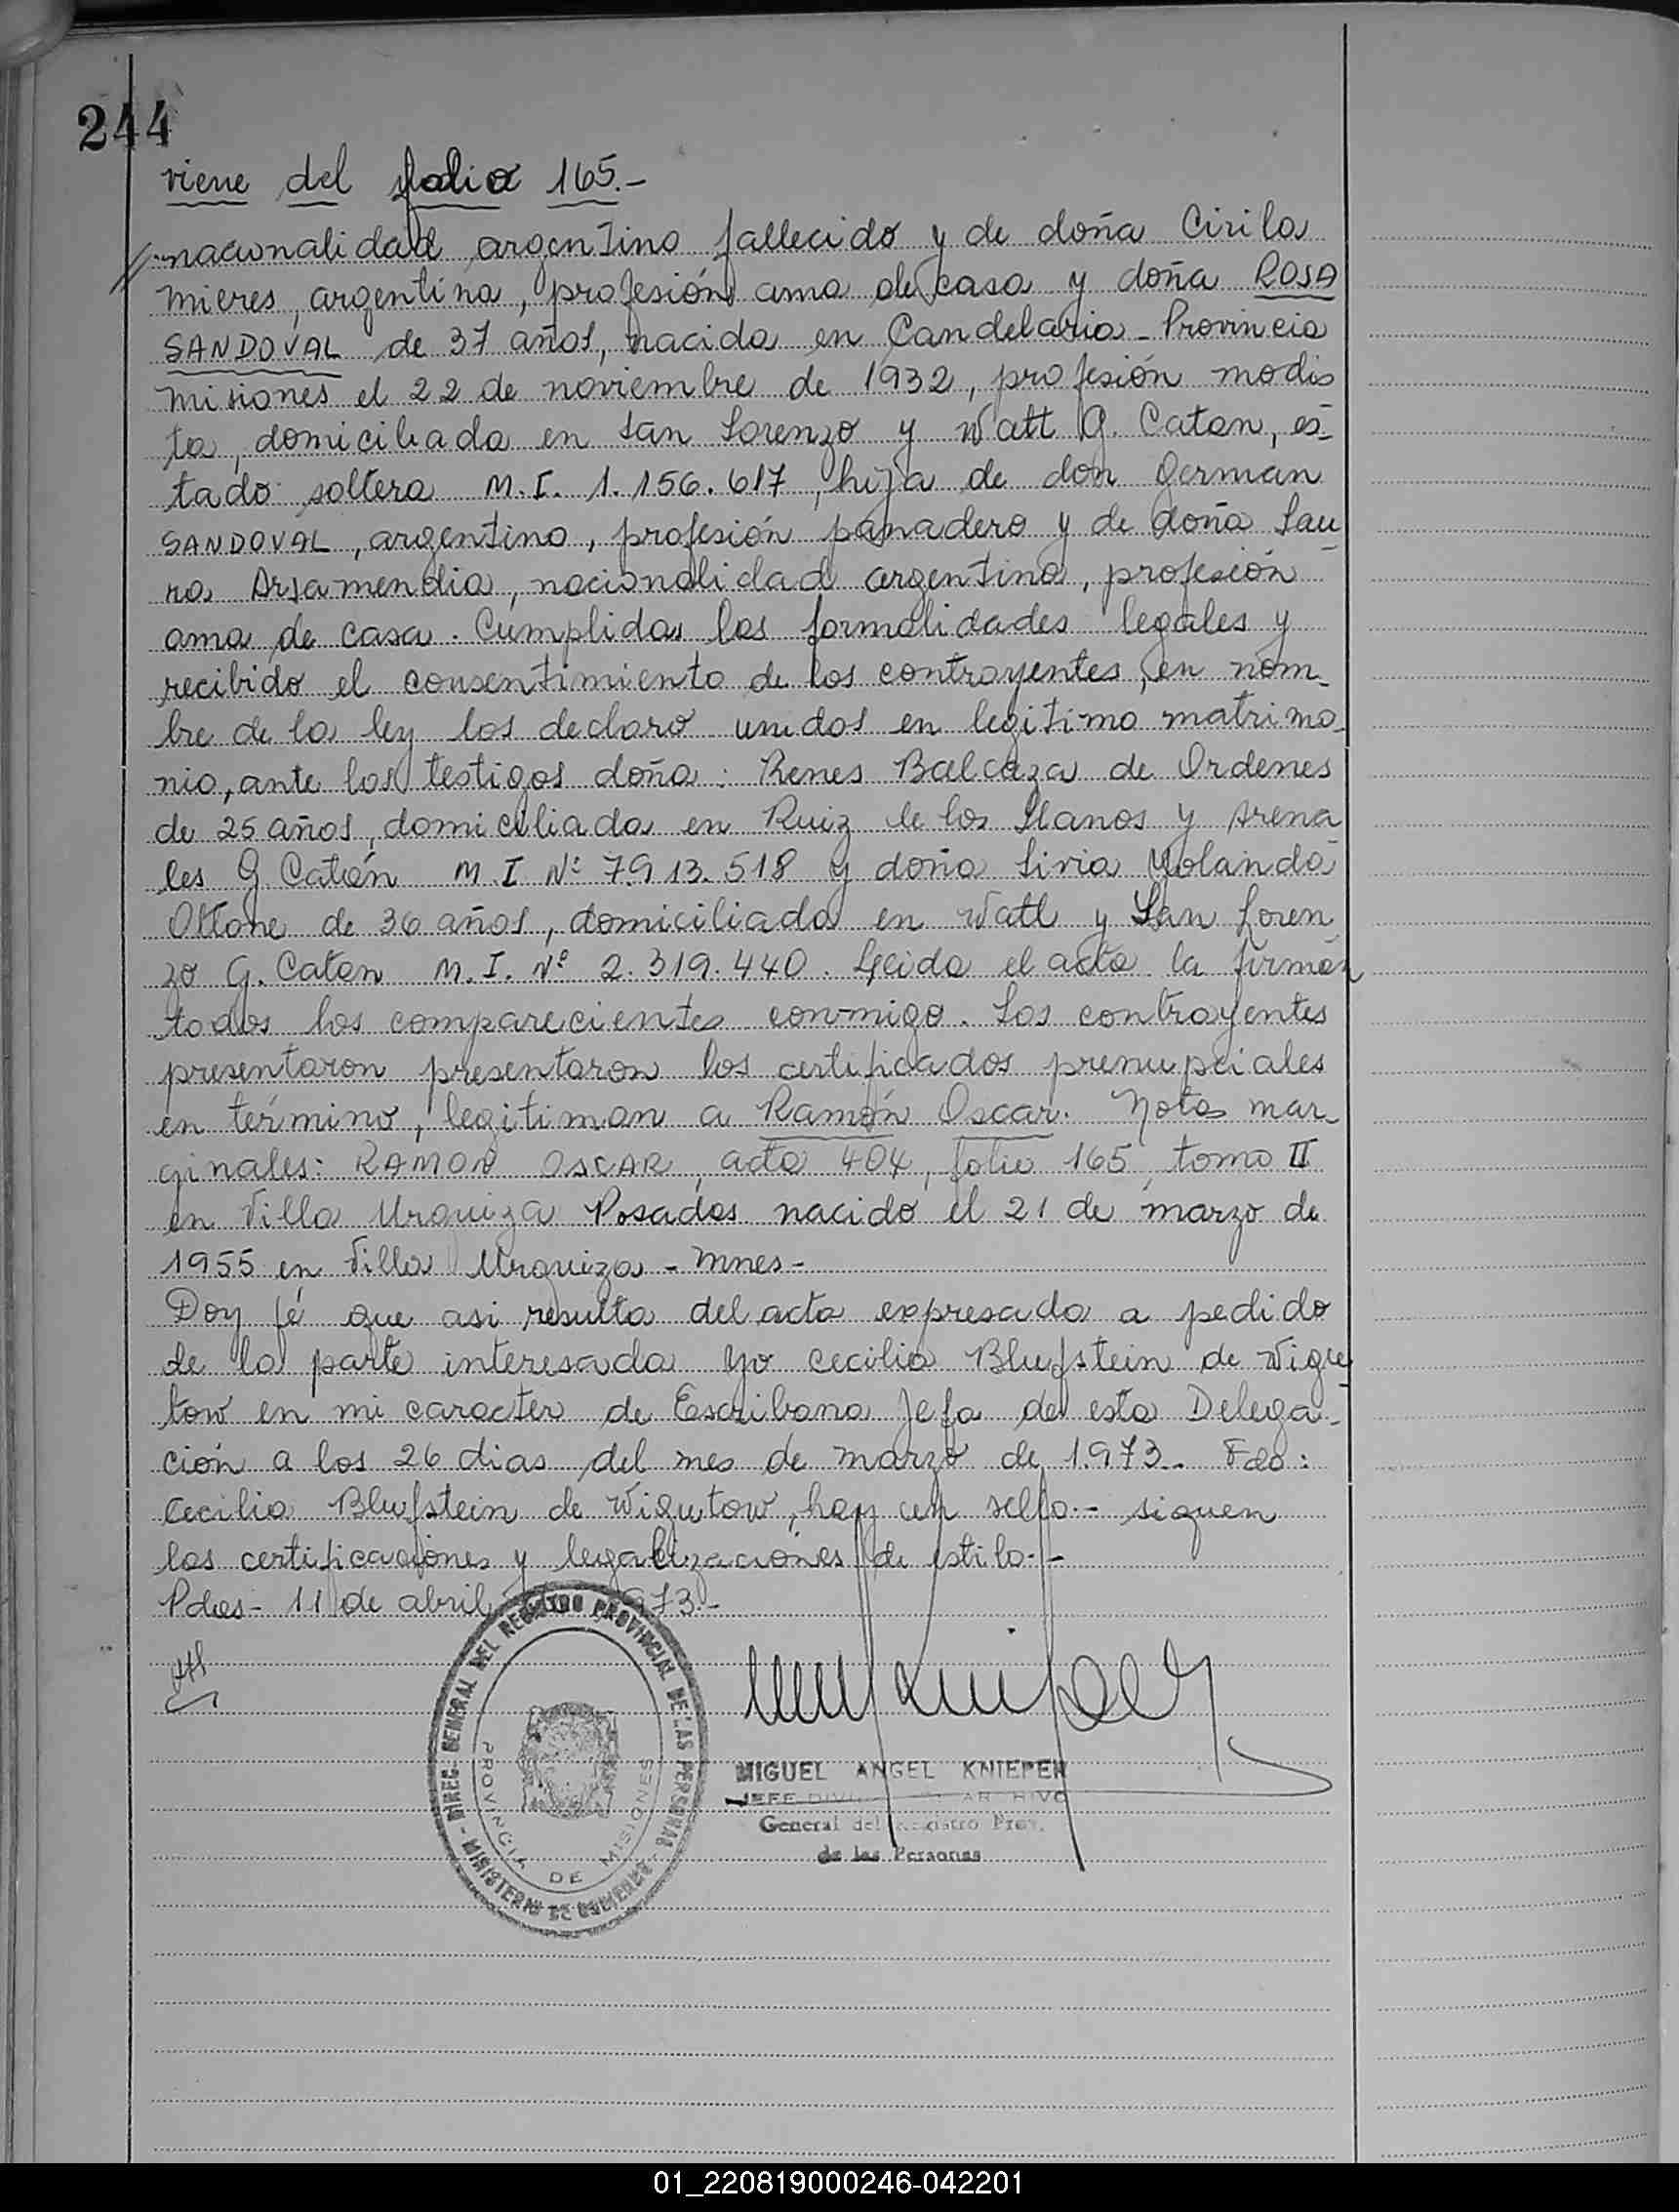 244
viene del folio 165.-
nacionalidad argentino fallecido y de doña Cirila
Mieres, argentina, profesión ama de casa y doña ROSA
SANDOVAL de 37 años, nacida en Candelaria - Provincia
Misiones el 22 de noviembre de 1932, profesión modis
ta, domiciliada en San Lorenzo y Watt G. Catan, es-
tado soltera M.I. 1.156.617, hija de don German
SANDOVAL, argentino, profesión panadero y de doña Lau
ra Arsamendia, nacionalidad argentina, profesión
ama de casa. Cumplidas las formalidades legales y
recibido el consentimiento de los contrayentes, en nom-
bre de la ley los declaro unidos en legitimo matrimo-
nio, ante los testigos doña: Renes Balcaza de Ordenes
de 25 años, domiciliada en Ruiz de los Llanos y Arena
les G Catán M I Nº 7.913.518 y doña Liria Yolanda
Ottone de 36 años, domiciliada en Watt y San Loren
zo G. Catan M.I. Nº 2.319.440. Leida el acta la firman
todos los comparecientes conmigo. Los contrayentes
presentaron presentaron los certificados prenupciales
en término, legitiman a Ramón Oscar. Notas mar-
ginales: RAMON OSCAR, acta 404, folio 165, tomo II
en Villa Urquiza Posadas nacido el 21 de marzo de
1955 en Villa Urquiza - Mnes-
Doy fé que asi resulta del acta expresada a pedido
de la parte interesada yo Cecilia Blufstein de Wigu
tow en mi caracter de Escribana Jefa de esta Delega-
ción a los 26 dias del mes de marzo de 1.973.. Fdo:
Cecilia Blufstein de Wigutow, hay un sello.- siguen
las certificaciones y legalizaciones de estilo.--
Pdas- 11 de abril 973.-
DIREC. GENERAL DEL REGISTRO PROVINCIAL DE LAS PERSONAS - MINISTERIO DE GOBIERNO -
PROVINCIA DE MISIONES
MIGUEL ANGEL KNIEPER
JEFE ARCHIVO
General del Registro Prov.
de las Personas
01_220819000246-042201